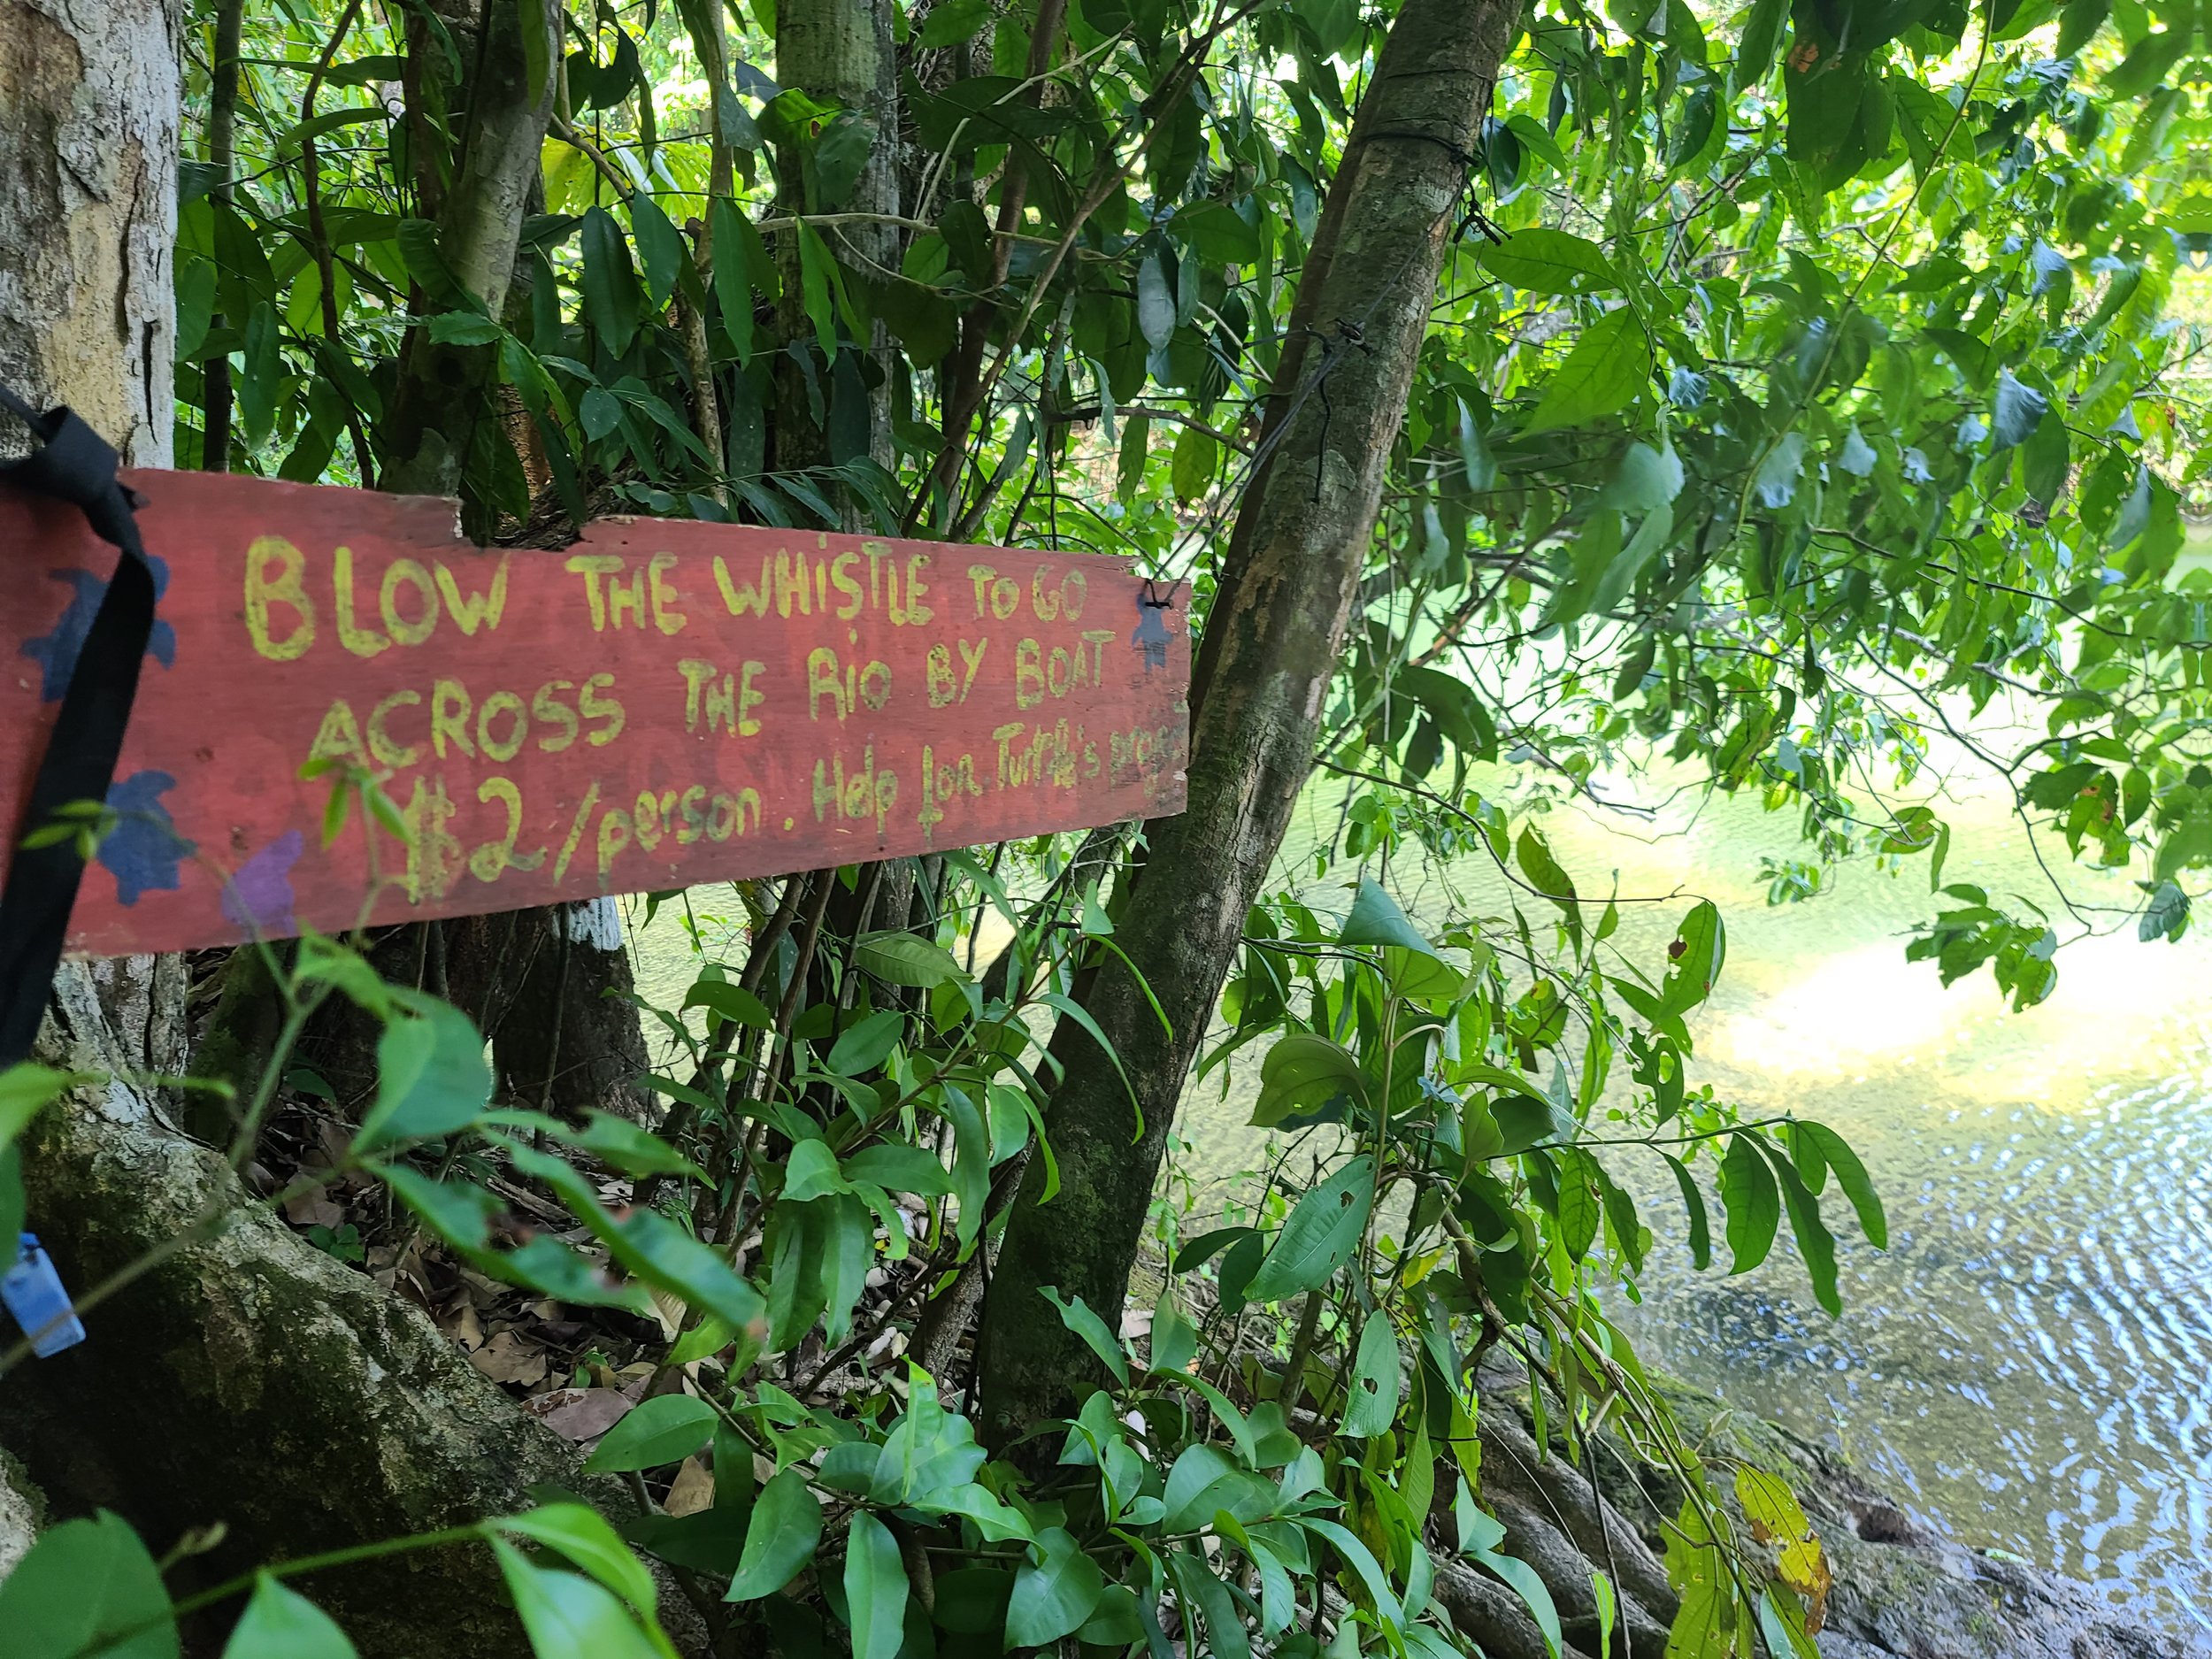 BLOW THE WHiSTLE TO GO
ACROSS THE RiO BY BOAT
$2/person. Help for Turtle's